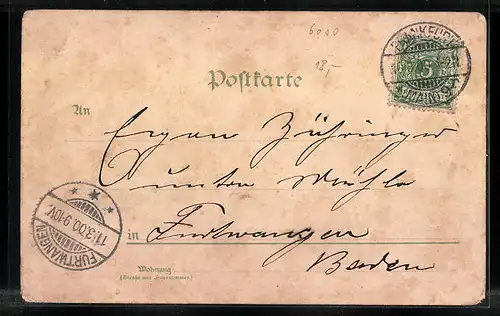 6000
18,-
Postkarte
An
Eugen Zähringer
untere Mühle
in Furtwangen
Baden
Wohnung
(Straße und Hausnummer)
5
FURTWANGEN
11.3.00. 9-10V.